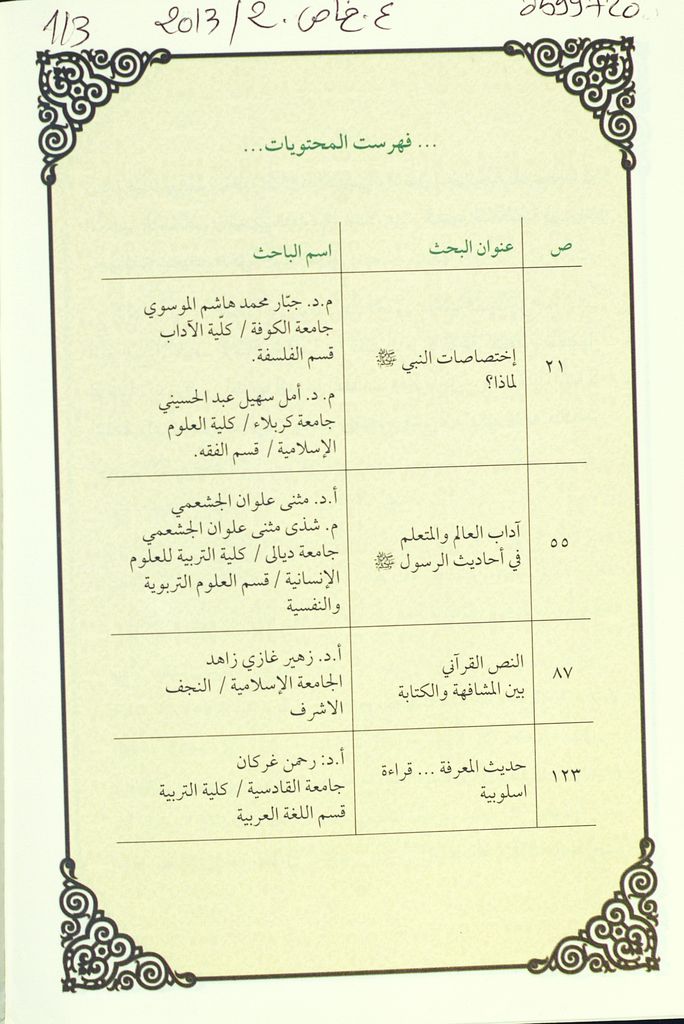 1/3
ع. خاص. 2 / 2013
... فهرست المحتويات...
ص عنوان البحث اسم الباحث
٢١
إختصاصات النبي ﷺ
لماذا؟
م.د. جبّار محمد هاشم الموسوي
جامعة الكوفة / كلّية الآداب
قسم الفلسفة.
م. د. أمل سهيل عبد الحسيني
جامعة كربلاء / كلية العلوم
الإسلامية / قسم الفقه.
٥٥
آداب العالم والمتعلم
في أحاديث الرسول ﷺ
أ.د. مثنى علوان الجشعمي
م. شذى مثنى علوان الجشعمي
جامعة ديالى / كلية التربية للعلوم
الإنسانية / قسم العلوم التربوية
والنفسية
٨٧
النص القرآني
بين المشافهة والكتابة
أ.د. زهير غازي زاهد
الجامعة الإسلامية / النجف
الاشرف
١٢٣
حديث المعرفة ... قراءة
اسلوبية
أ.د: رحمن غركان
جامعة القادسية / كلية التربية
قسم اللغة العربية